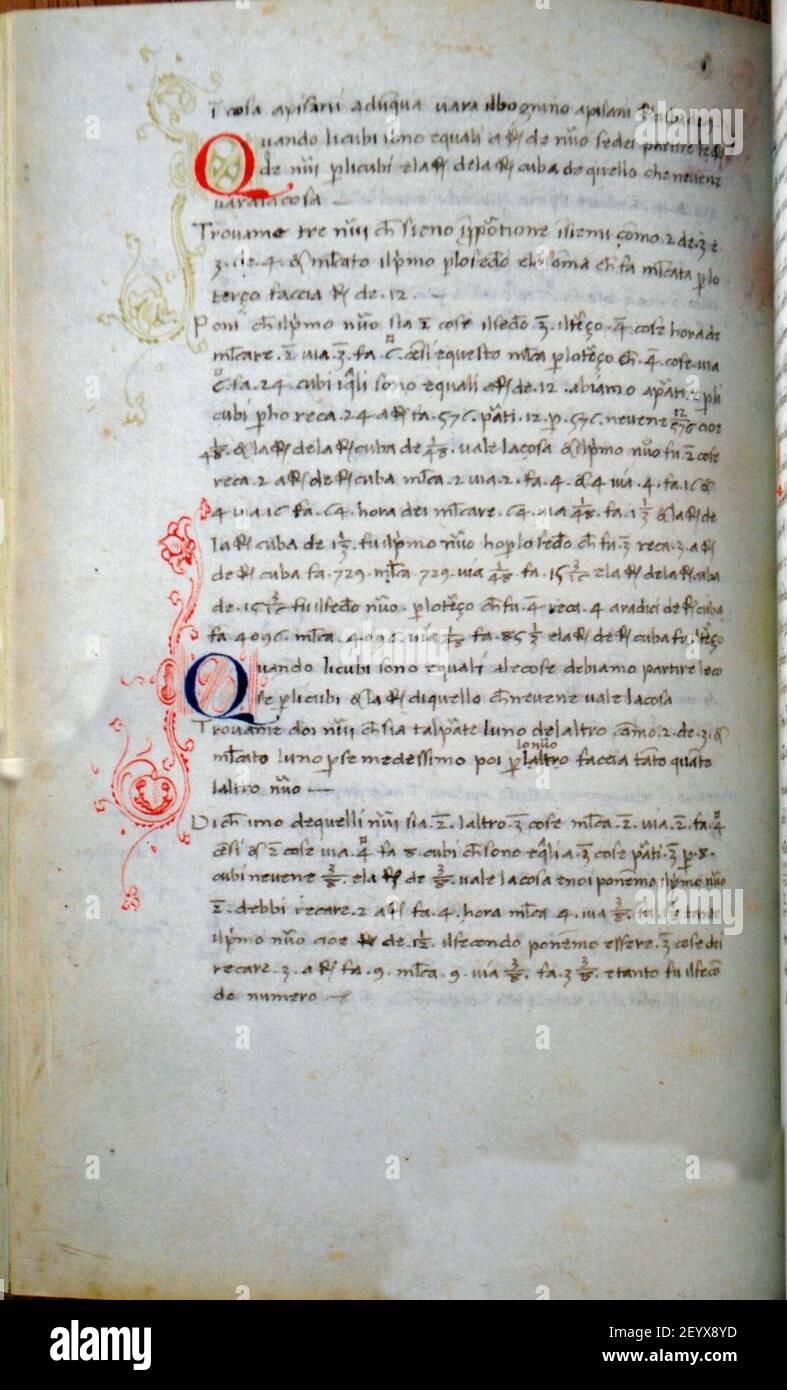 cosa a pisani adunqua vara il bognino a pisani
Quando li cubi sono equali a R de nūo se dei partire le R
de nūi p̱ li cubi e la R de la R cuba de quello che nevene
vara la cosa
Trovame tre nūi ch̄ sieno i p̱portione issiemi como .2. de .3. e
.3. de .4. & ml̄cato il p̄mo p̱ lo sedo e la soma ch̄ fa ml̄cata p̱ lo
terço faccia R de .12.
Poni ch̄ il p̄mo nūo sia 2̄ cose il sedo .3̄. il terço .4̄ cose hora de
ml̄care .2̄ via .3̄. fa .6. cēsi e questo ml̄ca p̱ lo terço ch̄ .4̄. cose via
6. fa .24 cubi i q̄li sono equali a R de .12. abiamo a p̱ati.2. p̱ li
cubi p̱ho reca .24 a R fa .576. p̱ati .12. p̱ .576. nevene 12/576 cioe
1/48. & la R de la R cuba de 1/48. vale la cosa & il p̄mo nūo fu .2̄ cose
reca .2 a R de R cuba ml̄ca .2 via .2. fa .4. & 4 via .4. fa .16 &
4 via 16 fa .64. hora dei ml̄care .64. via 1/48. fa .1 1/3 & la R de
la R cuba de 1 1/3. fu il p̄mo nūo ho p̱ lo sedo ch̄ fu .3̄ reca .3. a R
de R cuba fa .729. ml̄ca .729. via 1/48. fa .15 3/16 e la R de la R cuba
de .15 3/16 fu il sedo nūo . p̱ lo terço ch̄ fu .4̄ reca .4 a radici de R cuba
fa 4096. ml̄ca .4096. via 1/48 fa .85 1/3 e la R de R cuba fu il terço
Quando li cubi sono equali ale cose debiamo partire le co
se p̱ li cubi & la R di quello ch̄ nevene vale la cosa
Trovame doi nūi ch̄ sia tal p̱ate luno del altro como .2. de .3. &
ml̄cato luno p̱ se medessimo poi p̱ laltro faccia tāto quāto
lonūo
laltro nūo
Di ch̄ uno de quelli nūi sia .2̄. laltro .3̄ cose ml̄ca .2̄. via .2̄. fa .4
cēsi & 2̄ cose via .4 fa 8. cubi ch̄ sono eq̄li a .3̄ cose p̱ati .3̄ p̱ .8.
cubi nevene 3/8. e la R de 3/8. vale la cosa e noi ponemo il p̄mo nūo
2̄. debbi recare .2 a R fa .4. hora ml̄ca 4. via 3/8. fa 1 1/2 e tanto
il p̄mo nūo cioe R de .1 1/2. il secondo ponemo essere .3̄ cose dei
recare .3. a R fa .9. ml̄ca .9. via 3/8. fa .3 3/8. e tanto fu il seco
do numero
alamy
alamy
Image ID: 2EYX8YD
www.alamy.com